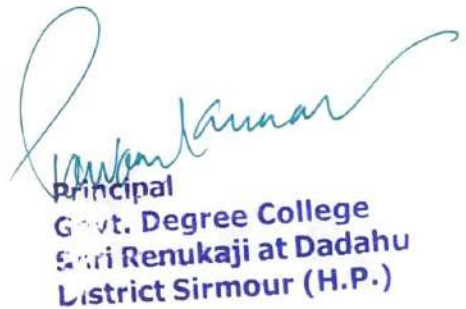 Kumar
Principal
Govt. Degree College
Shri Renukaji at Dadahu
District Sirmour (H.P.)